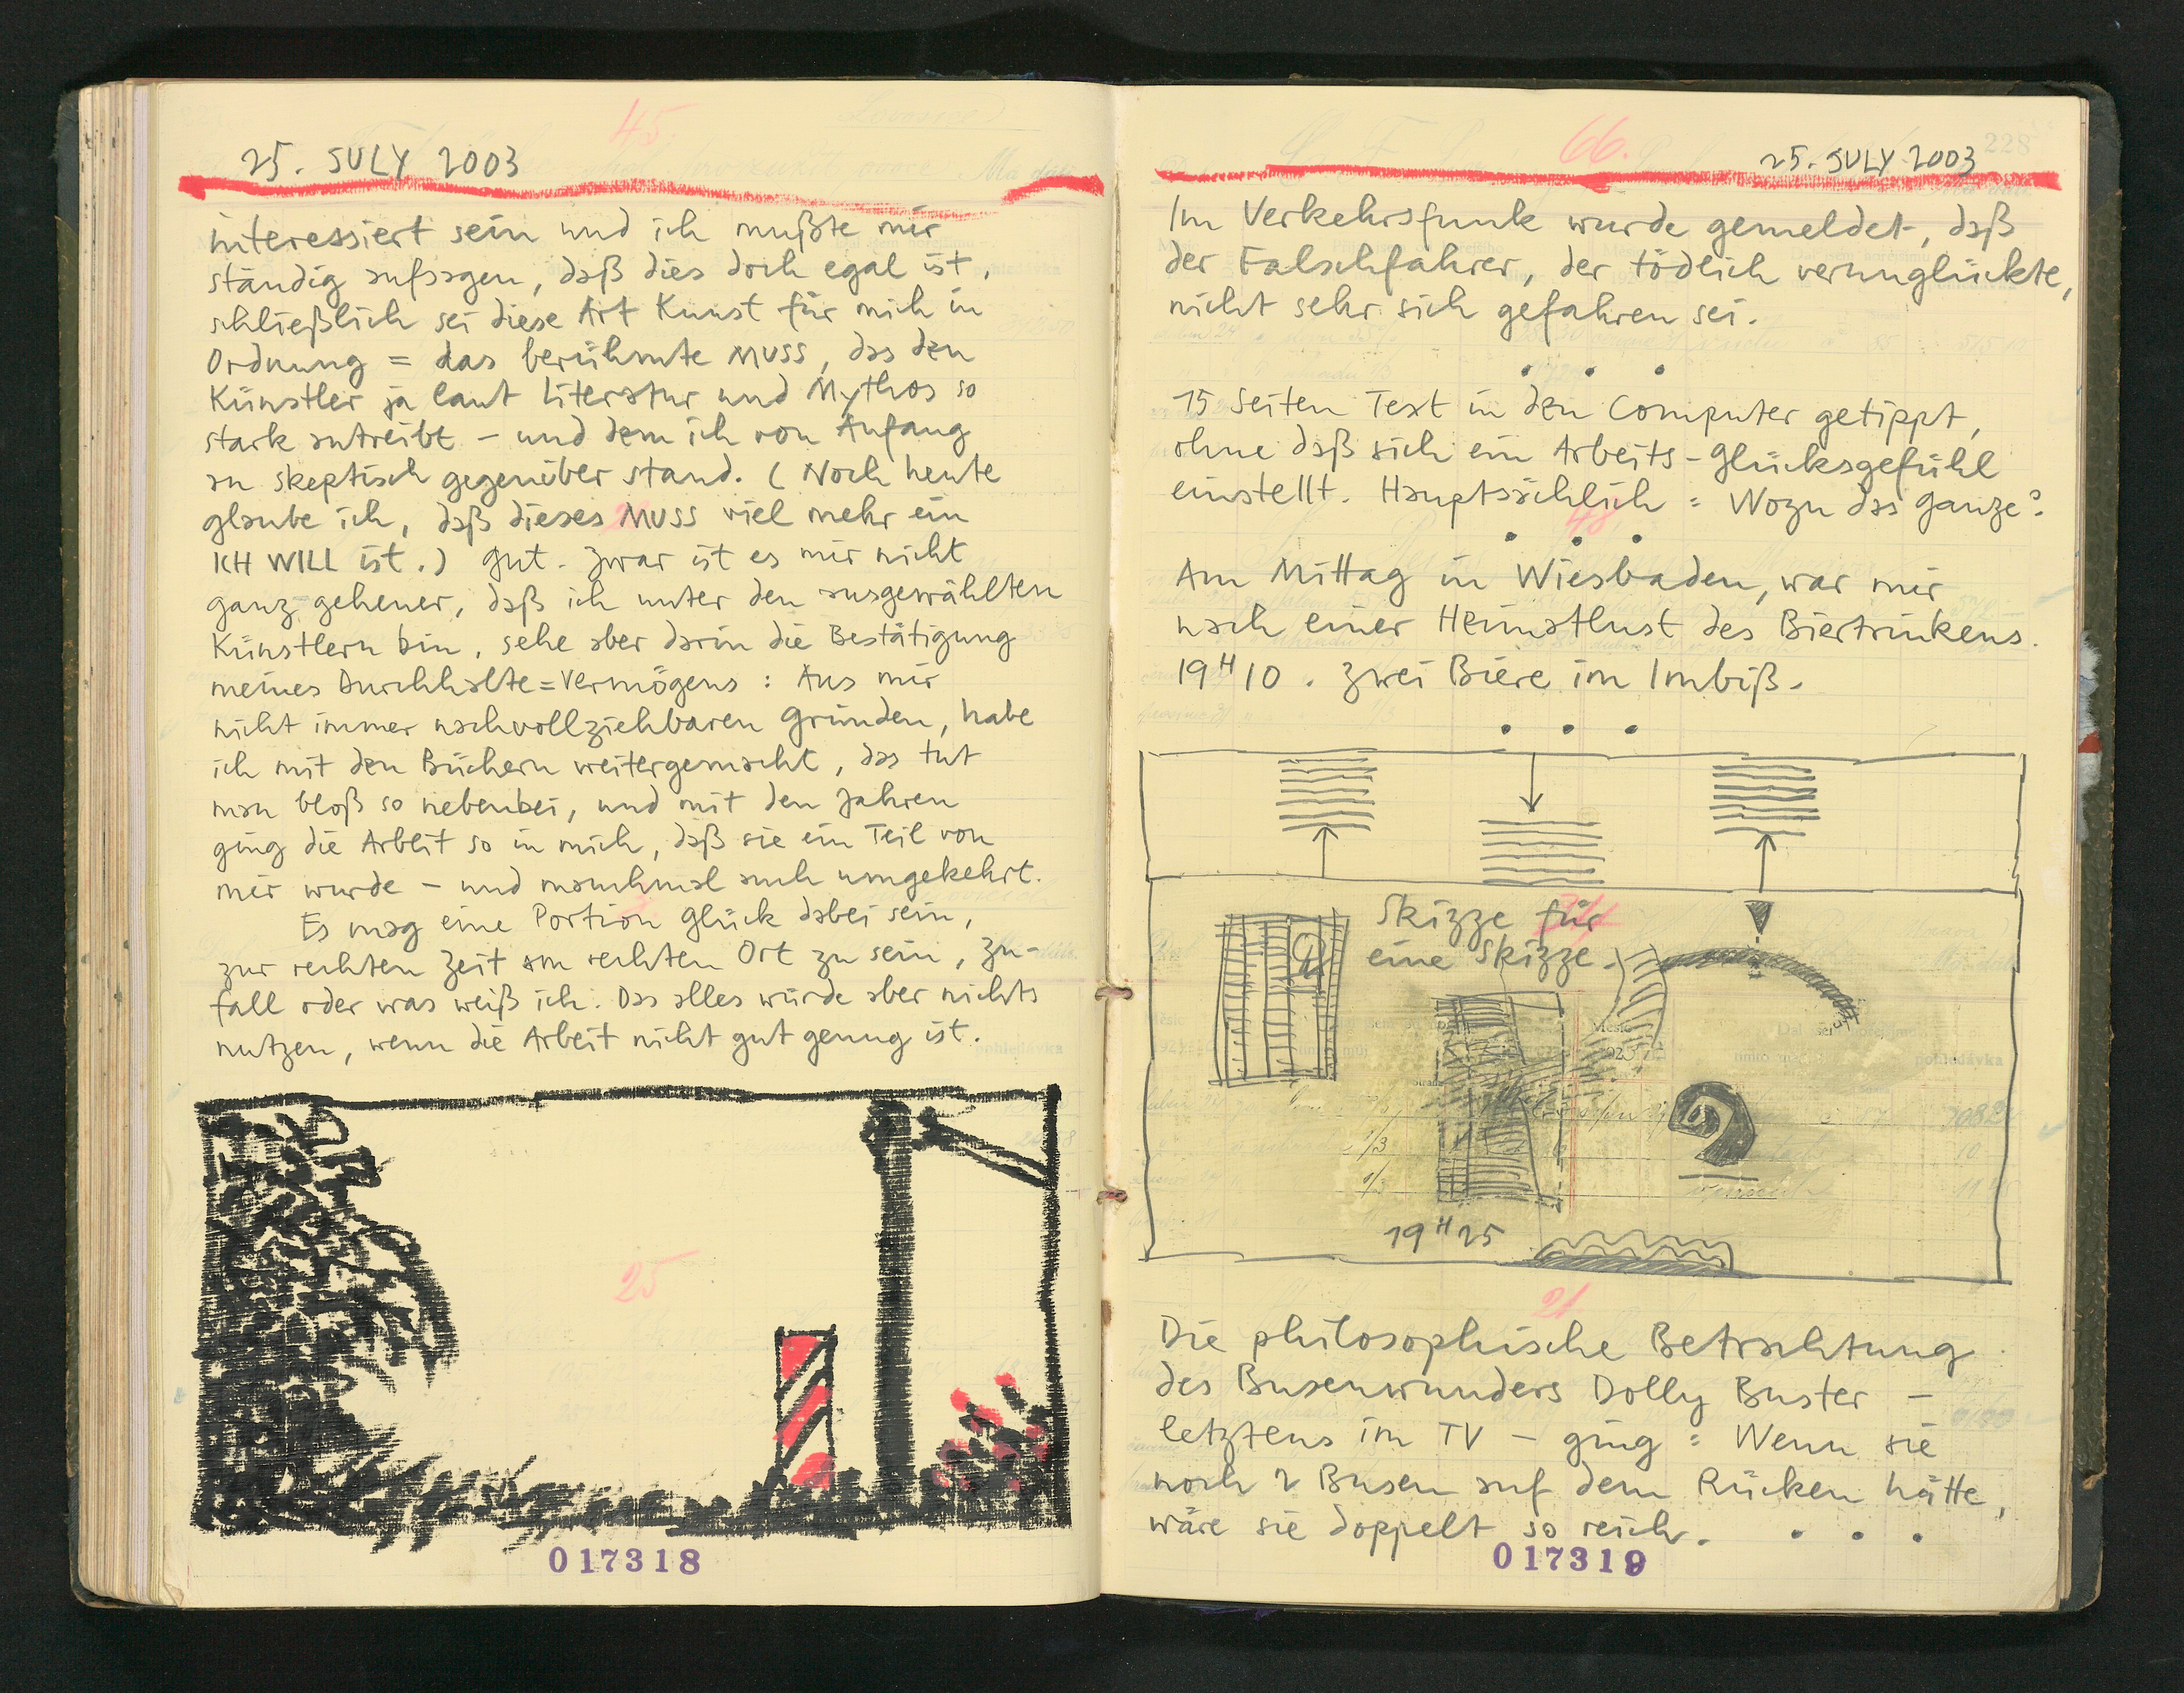 25. JULY 2003
interessiert sein und ich mußte mir
ständig aufsagen, daß dies doch egal ist,
schließlich sei diese Art Kunst für mich in
Ordnung = das berühmte MUSS, das den
Künstler ja laut Literatur und Mythos so
stark antreibt – und dem ich von Anfang
an skeptisch gegenüber stand. (Noch heute
glaube ich, daß dieses MUSS viel mehr ein
ICH WILL ist.) Gut. Zwar ist es mir nicht
ganz geheuer, daß ich unter den ausgewählten
Künstlern bin, sehe aber darin die Bestätigung
meines Durchhalte=Vermögens: Aus mir
nicht immer nachvollziehbaren Gründen, habe
ich mit den Büchern weitergemacht, das tut
man bloß so nebenbei, und mit den Jahren
ging die Arbeit so in mich, daß sie ein Teil von
mir wurde – und manchmal auch umgekehrt.
Es mag eine Portion Glück dabei sein,
zur rechten Zeit am rechten Ort zu sein, Zu-
fall oder was weiß ich. Das alles würde aber nichts
nutzen, wenn die Arbeit nicht gut genug ist.
45.
25
017318
66.
228
25. JULY 2003
Im Verkehrsfunk wurde gemeldet, daß
der Falschfahrer, der tödlich verunglückte,
nicht sehr sich gefahren sei.
• • •
15 Seiten Text in den Computer getippt,
ohne daß sich ein Arbeits-Glücksgefühl
einstellt. Hauptsächlich: Wozu das Ganze?
48
• • •
Am Mittag in Wiesbaden, war mir
nach einer Heimatlust des Biertrinkens.
19H10. Zwei Biere im Imbiß.
• • •
Skizze für
eine Skizze.
pohledávka
19H25
21
Die philosophische Betrachtung
des Busenwunders Dolly Buster –
letztens im TV – ging: Wenn sie
noch 2 Busen auf dem Rücken hätte,
wäre sie doppelt so reich. • • •
017319